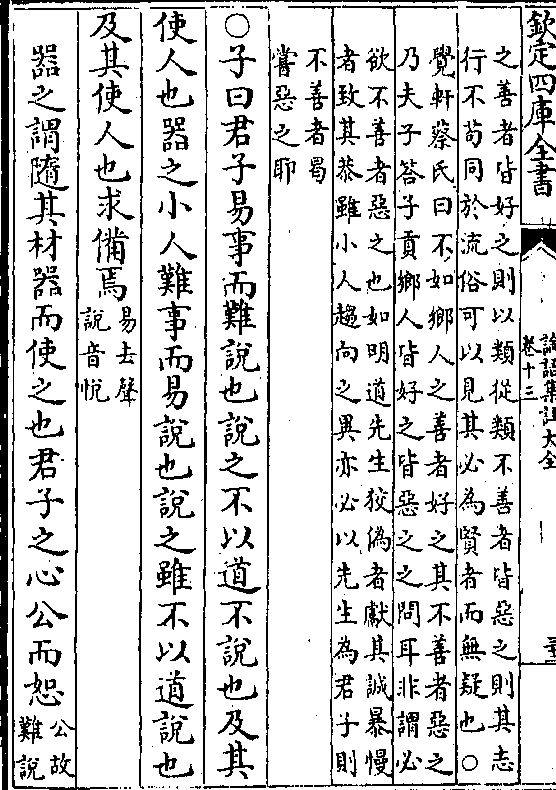 欽定四庫全書
論語集註大全
卷十三
之善者皆好之則以類從類不善者皆惡之則其志
行不苟同於流俗可以見其必為賢者而無疑也○
覺軒蔡氏曰不如鄉人之善者好之其不善者惡之
乃夫子答子貢鄉人皆好之皆惡之之問耳非謂必
欲不善者惡之也如明道先生狡偽者獻其誠暴慢
者致其恭雖小人趨向之異亦必以先生為君子則
不善者曷
嘗惡之耶
○子曰君子易事而難說也說之不以道不說也及其
使人也器之小人難事而易說也說之雖不以道說也
及其使人也求備焉
易去聲
說音悅
器之謂隨其材器而使之也君子之心公而恕
公故
難說